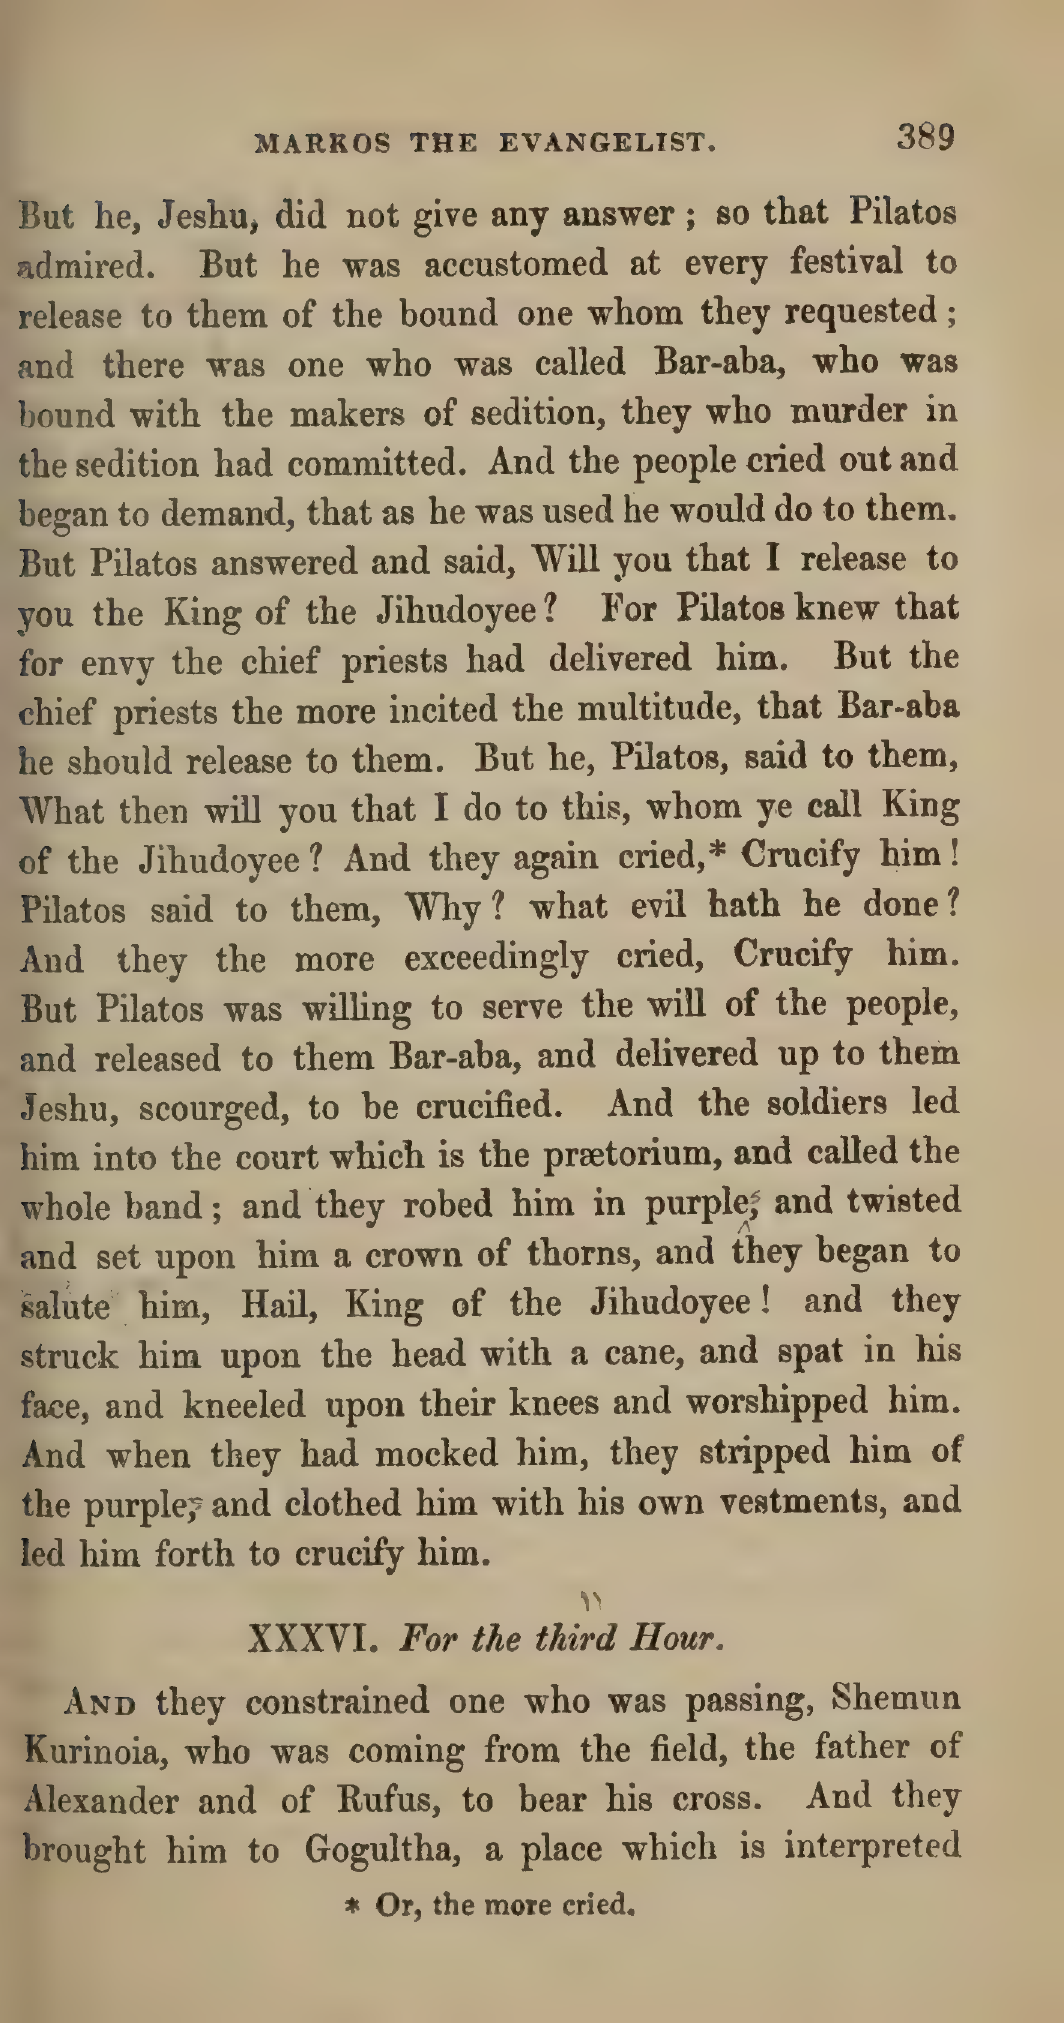 MARKOS THE EVANGELIST. 389
But he, Jeshu, did not give any answer ; so that Pilatos
admired. But he was accustomed at every festival to
release to them of the bound one whom they requested ;
and there was one who was called Bar-aba, who was
bound with the makers of sedition, they who murder in
the sedition had committed. And the people cried out and
began to demand, that as he was used he would do to them.
But Pilatos answered and said, Will you that I release to
you the King of the Jihudoyee ? For Pilatos knew that
for envy the chief priests had delivered him. But the
chief priests the more incited the multitude, that Bar-aba
he should release to them. But he, Pilatos, said to them,
What then will you that I do to this, whom ye call King
of the Jihudoyee ? And they again cried,* Crucify him !
Pilatos said to them, Why ? what evil hath he done ?
And they the more exceedingly cried, Crucify him.
But Pilatos was willing to serve the will of the people,
and released to them Bar-aba, and delivered up to them
Jeshu, scourged, to be crucified. And the soldiers led
him into the court which is the prætorium, and called the
whole band ; and they robed him in purple, and twisted
and set upon him a crown of thorns, and they began to
salute him, Hail, King of the Jihudoyee ! and they
struck him upon the head with a cane, and spat in his
face, and kneeled upon their knees and worshipped him.
And when they had mocked him, they stripped him of
the purple, and clothed him with his own vestments, and
led him forth to crucify him.
XXXVI. For the third Hour.
AND they constrained one who was passing, Shemun
Kurinoia, who was coming from the field, the father of
Alexander and of Rufus, to bear his cross. And they
brought him to Gogultha, a place which is interpreted
* Or, the more cried.